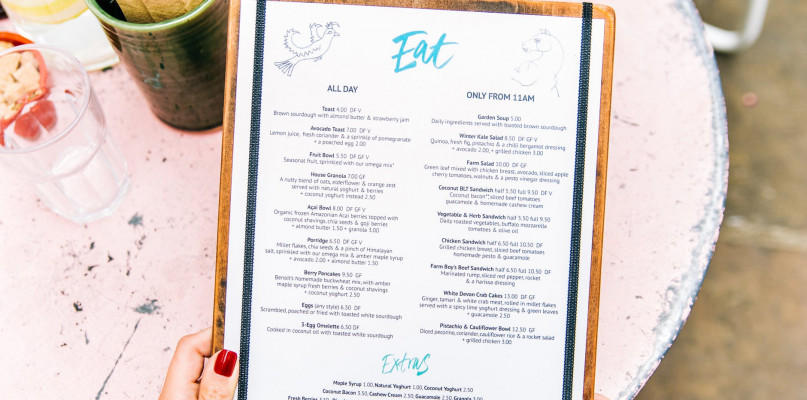 Eat
ALL DAY
Toast 4.00 DF V
Brown sourdough with almond butter & strawberry jam
Avocado Toast 7.00 DF V
Lemon juice, fresh coriander & a sprinkle of pomegranate
+ a poached egg 2.00
Fruit Bowl 5.50 DF GF V
Seasonal fruit, sprinkled with our omega mix*
House Granola 7.00 GF
A nutty blend of oats, elderflower & orange zest
served with natural yoghurt & berries
+ coconut yoghurt instead 2.50
Açai Bowl 8.00 DF GF V
Organic frozen Amazonian Açai berries topped with
coconut shavings, chia seeds & goji berries
+ almond butter 1.50 + granola 3.00
Porridge 6.50 DF GF V
Millet flakes, chia seeds & a pinch of Himalayan
salt, sprinkled with our omega mix & amber maple syrup
+ avocado 2.00 + almond butter 1.50
Berry Pancakes 9.50 GF
Benoit's homemade buckwheat mix, with amber
maple syrup fresh berries & coconut shavings
+ coconut yoghurt 2.50
Eggs (any style) 6.50 DF
Scrambled, poached or fried with toasted white sourdough
3-Egg Omelette 6.50 DF
Cooked in coconut oil with toasted white sourdough
ONLY FROM 11AM
Garden Soup 5.00
Daily ingredients served with toasted brown sourdough
Winter Kale Salad 8.50 DF GF V
Quinoa, fresh fig, pistachio & a chilli bergamot dressing
+ avocado 2.00, + grilled chicken 3.00
Farm Salad 10.00 DF GF
Green leaf mixed with chicken breast, avocado, sliced apple
cherry tomatoes, walnuts & a pesto vinegar dressing
Coconut BLT Sandwich half 5.50 full 9.50 DF V
Coconut bacon**, sliced beef tomatoes
guacamole & homemade cashew cream
Vegetable & Herb Sandwich half 5.50 full 9.50
Daily roasted vegetables, buffalo mozzarella
tomatoes & olive oil
Chicken Sandwich half 6.50 full 10.50 DF
Grilled chicken breast, sliced beef tomatoes
homemade pesto & guacamole
Farm Boy's Beef Sandwich half 6.50 full 10.50 DF
Marinated rump, sliced red pepper, rocket
& a harissa dressing
White Devon Crab Cakes 13.00 DF GF
Ginger, tamari & white crab meat, rolled in millet flakes
served with a spicy lime yoghurt dressing & green leaves
+ guacamole 2.50
Pistachio & Cauliflower Bowl 12.50 GF
Sliced pecorino, coriander, cauliflower rice & a rocket salad
+ grilled chicken 3.00
Extras
Maple Syrup 1.00, Natural Yoghurt 1.00, Coconut Yoghurt 2.50
Coconut Bacon 3.50, Cashew Cream 2.50, Guacamole 2.50, Granola 3.00
Fresh Berries